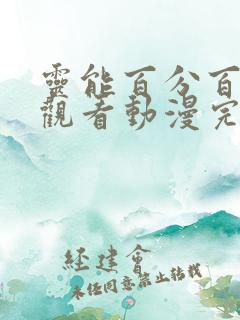 靈能百分百
觀看動漫完
经建會
未任同意禁止转载